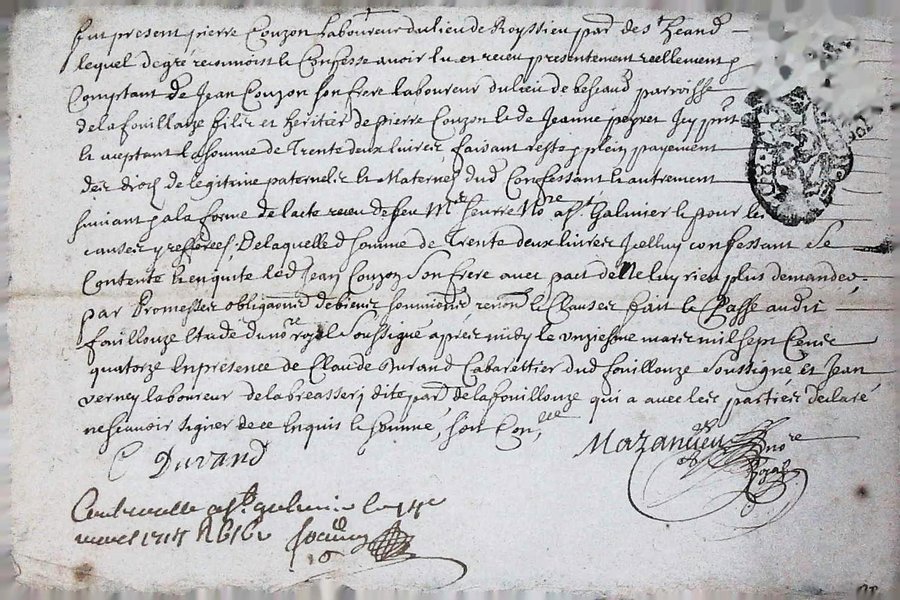 fut present pierre Couzon Laboureur du lieu de Royssieu par des st heand
lequel de gré reconnoist Et Confesse avoir hu et receu presentement reellement
Comptant de Jean Couzon son frere laboureur du lieu de parroisse
de la fouillouze fils et heritier de pierre Couzon et de Jeanne peyret Icy pnt
Et aceptant La somme de Trente deux livres faisant reste et plein payement
des droits de legitime paternels Et Maternels dud Confessant Et autrement
suivant la forme de lacte receu de feu Me Nore a st Galmier Et pour les
causes y De laquelle somme de Trente deux livres Icelluy confessant se
Contente Et en quite led Jean Couzon son frere avec pact de Ne luy rien plus demander
par Promesses obligaons de biens renon Et Clauses fait Et Passé audit
fouillouze Etude du nore royal Soussigné apres midy le unziesme mars mil sept Cent
quatorze En presence de Claude Durand Cabarettier dud fouillouze Soussigné et Jean
verney laboureur de dite par de la fouillouze qui a avec les parties declaré
ne scavoir signer de ce Enquis Et sommé, soit Con.lle
C Durand
Mazancieu
nore
Royal
Controuellé a st galmier le
mars 1714 R